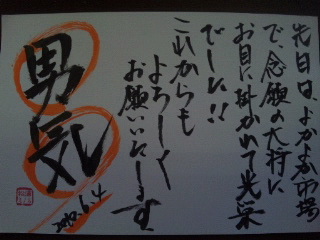 先日は、よかよか市場
で、念願の大将に
お目に掛かれて光栄
でした!!
これからも
よろしく
お願いいたします
男気
2012.6.4